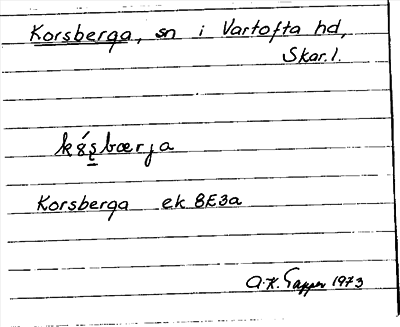 Korsberga, sn i Vartofta hd,
Skar. l.
kórsbærja
Korsberga ek 8E3a
A.K. Tapper 1973